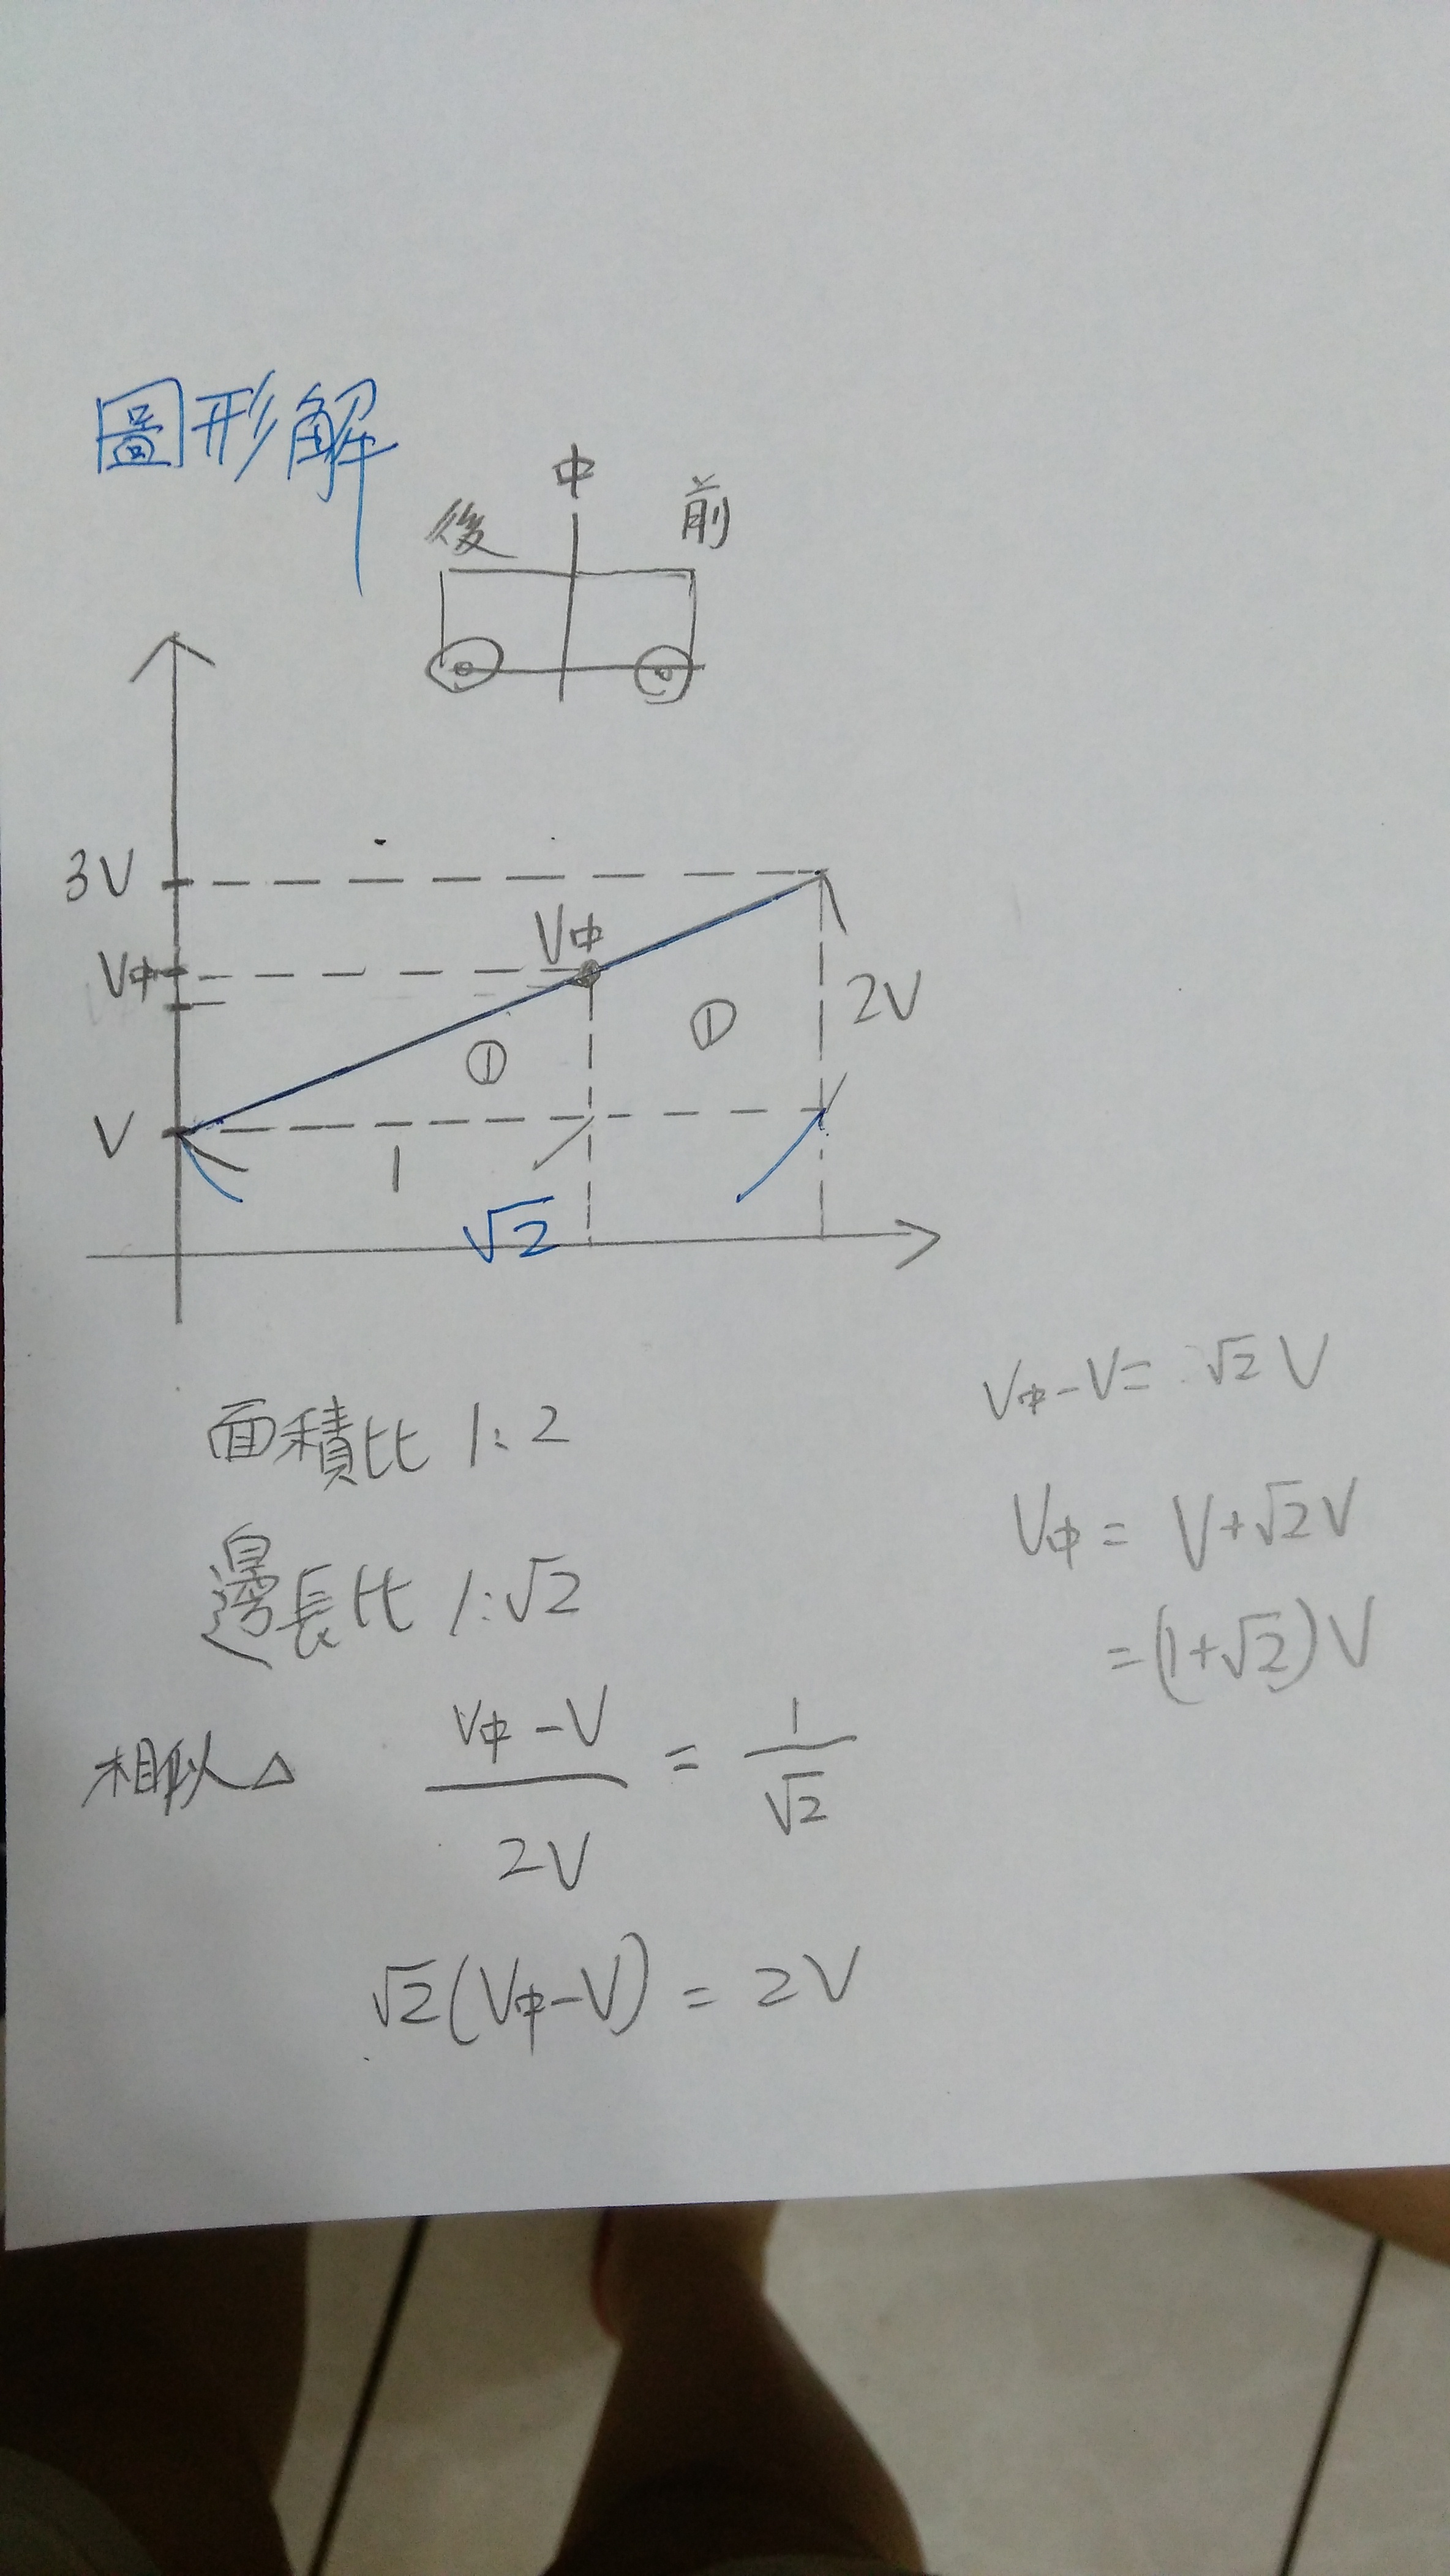 圖形解
後 中 前
3V
V中 V中
2V
① ①
V
1
√2
面積比 1:2
邊長比 1:√2
相似△ (V中-V)/2V = 1/√2
√2(V中-V) = 2V
V中-V= √2 V
V中 = V+√2V
=(1+√2)V